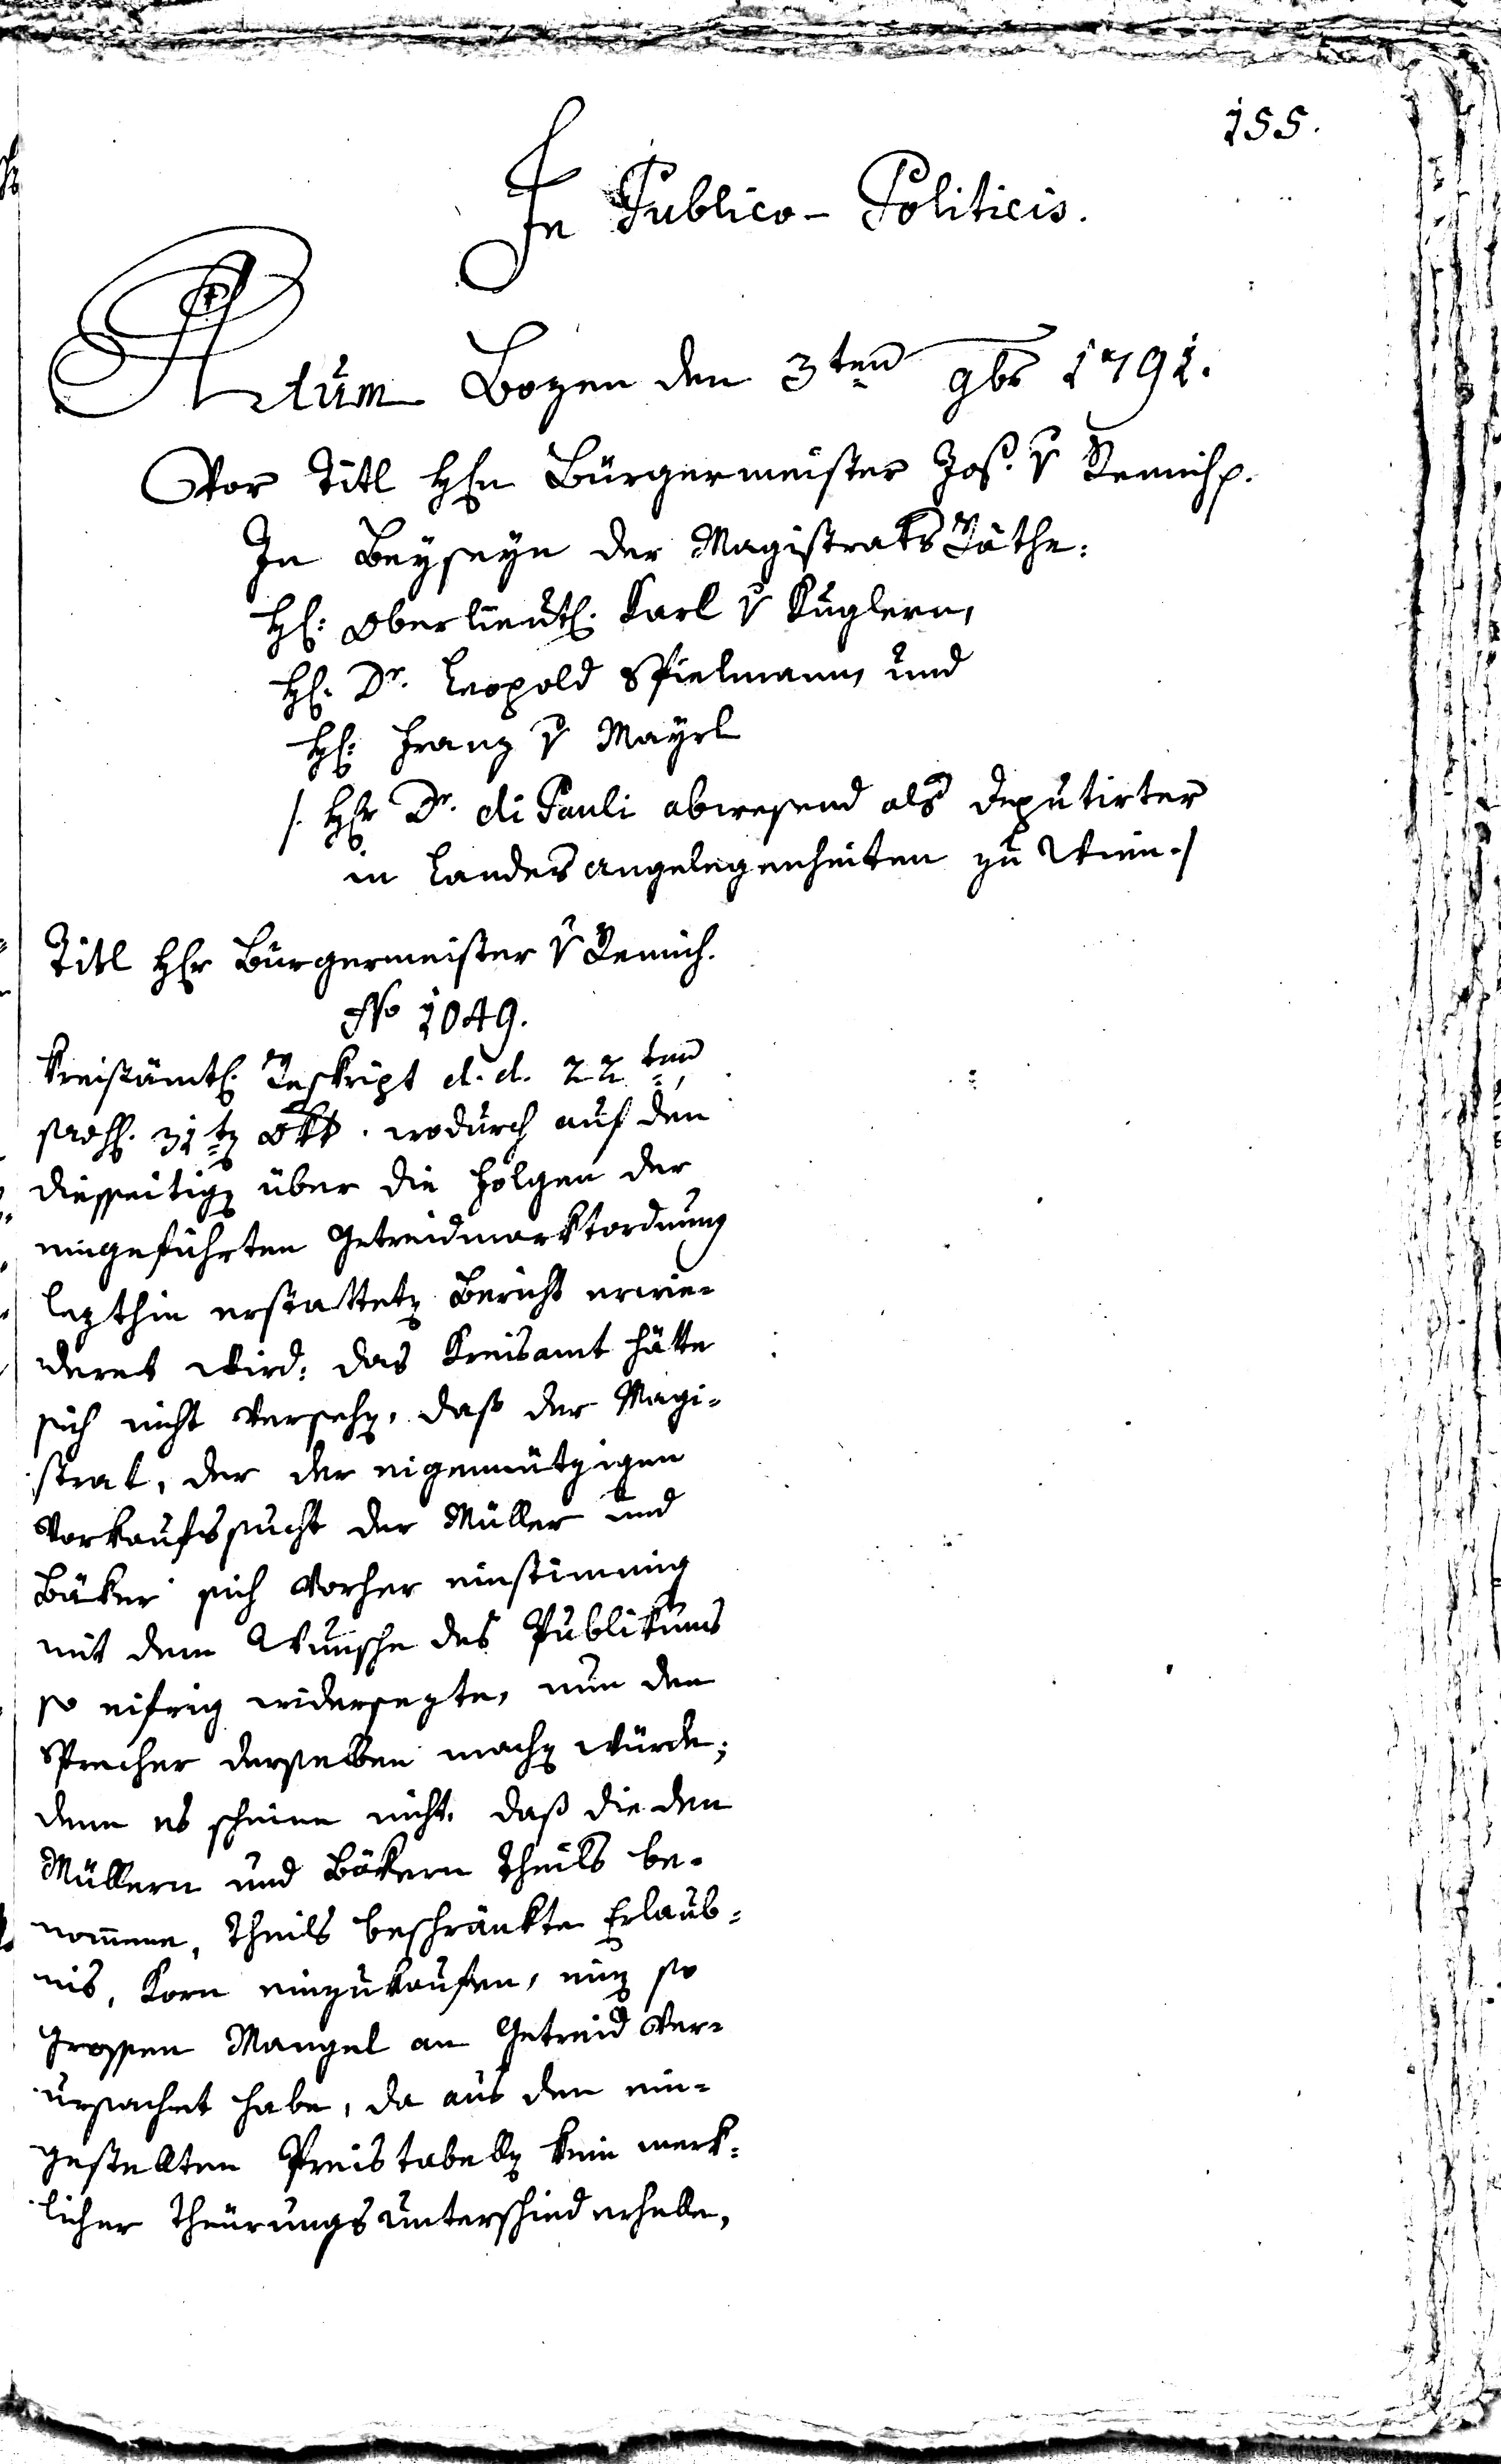 155.
In Publico-Politicis.
Actum Bozen den 3ten 9br 1791.
Vor Titl Hhn Bürgermeister Jos. v Remich p.
In Beyseyn der Magistrats Räthe:
H: Oberlieut. Karl v Kuglern,
H: Dr. Leopold Spielmann, und
H: Franz v Mayrl
/. Hr Dr. di Pauli abwesend als deputirter
in Landesangelegenheiten zu Wien./
Titl Hr Bürgermeister v Remich.
No 1049.
Kreisämtl. Reskript d. d. 22ten
31ten Okt. wodurch auf den
diesseitigen über die Folgen der
eingeführten Getreidmarktordnung
lezthin erstatteten Bericht erwie-
deret wird: das Kreisamt hätte
sich nicht versehen, daß der Magi-
strat, der der eigennützigen
Vorkaufssucht der Müller und
Bäker sich vorher einstimmig
mit dem Wunsche des Publikums
so eifrig widersezte, nun den
Sprecher derselben machen würde;
denn es scheine nicht, daß die den
Müllern und Bäkern theils be-
nom̄ene, theils beschränkte Erlaub-
nis, Korn einzukaufen, einen so
grossen Mangel an Getreid ver-
ursachet habe, da aus den ein-
gestellten Preistabellen kein merk-
licher Theurungsunterschied erhelle,